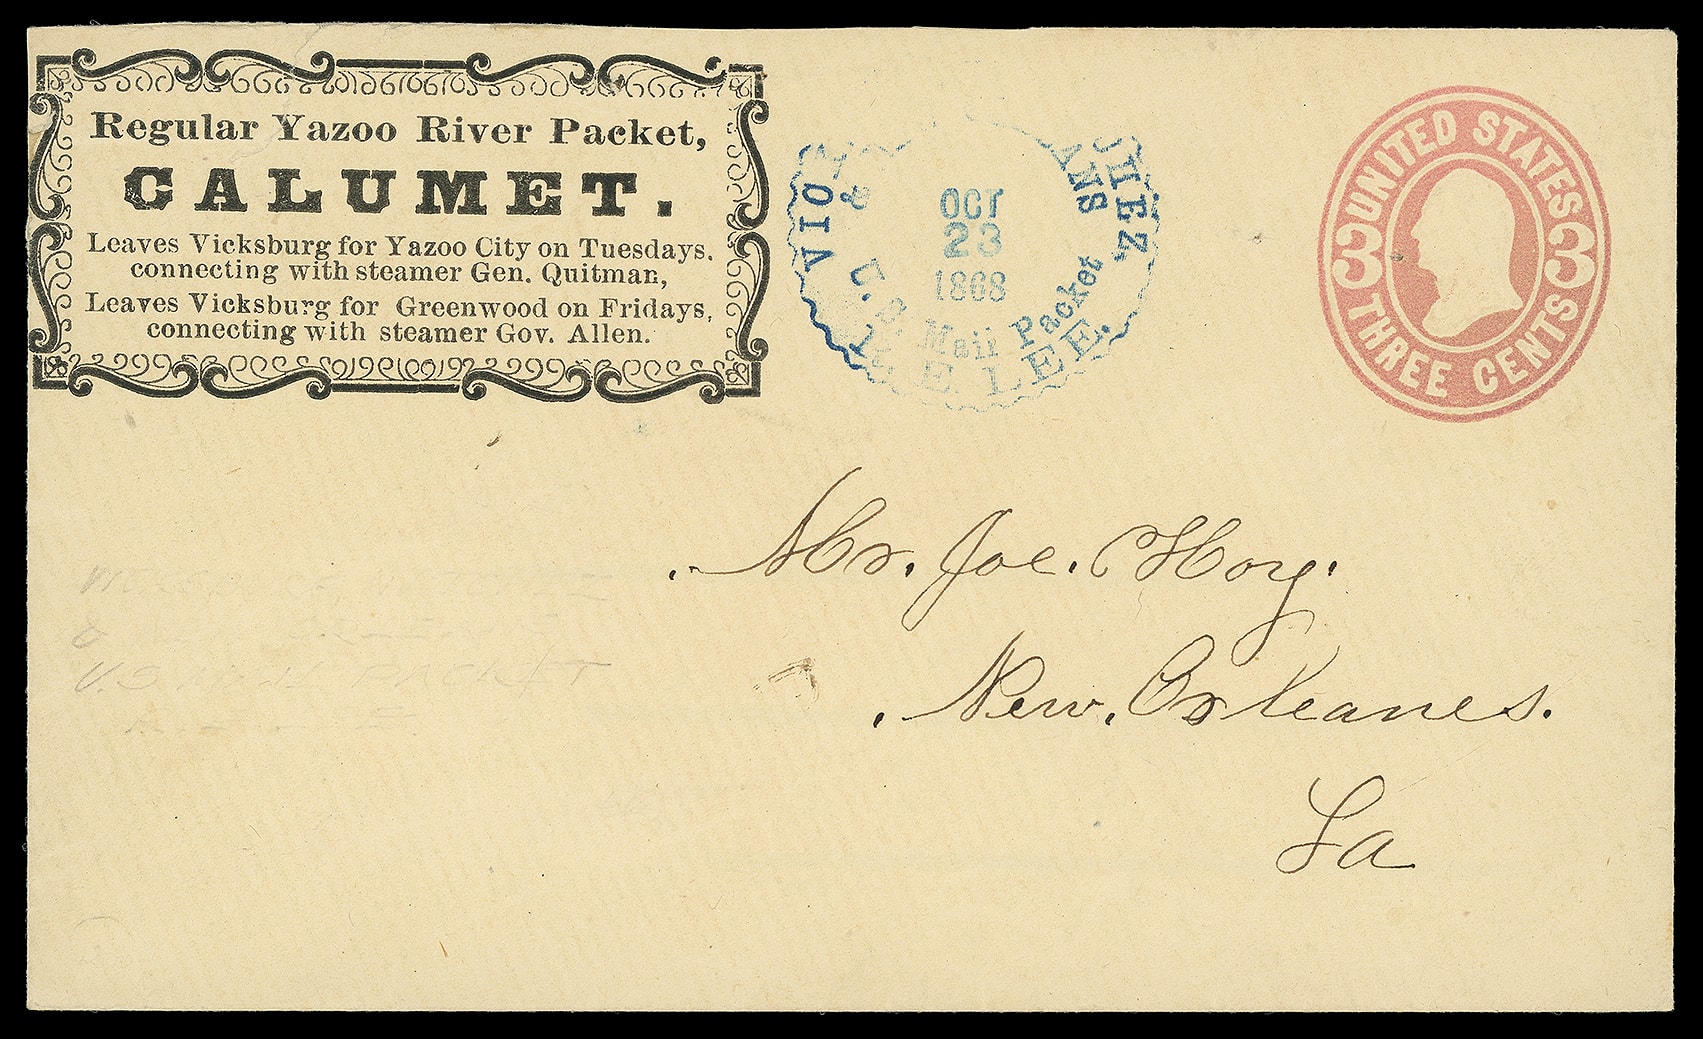 Regular Yazoo River Packet,
CALUMET.
Leaves Vicksburg for Yazoo City on Tuesdays.
connecting with steamer Gen. Quitman,
Leaves Vicksburg for Greenwood on Fridays,
connecting with steamer Gov. Allen.
OCT
23
1868
U.S. Mail Packet
E. LEE.
UNITED STATES
3 3
THREE CENTS
Mr. Joe. Hoy.
New, Orleanes.
La